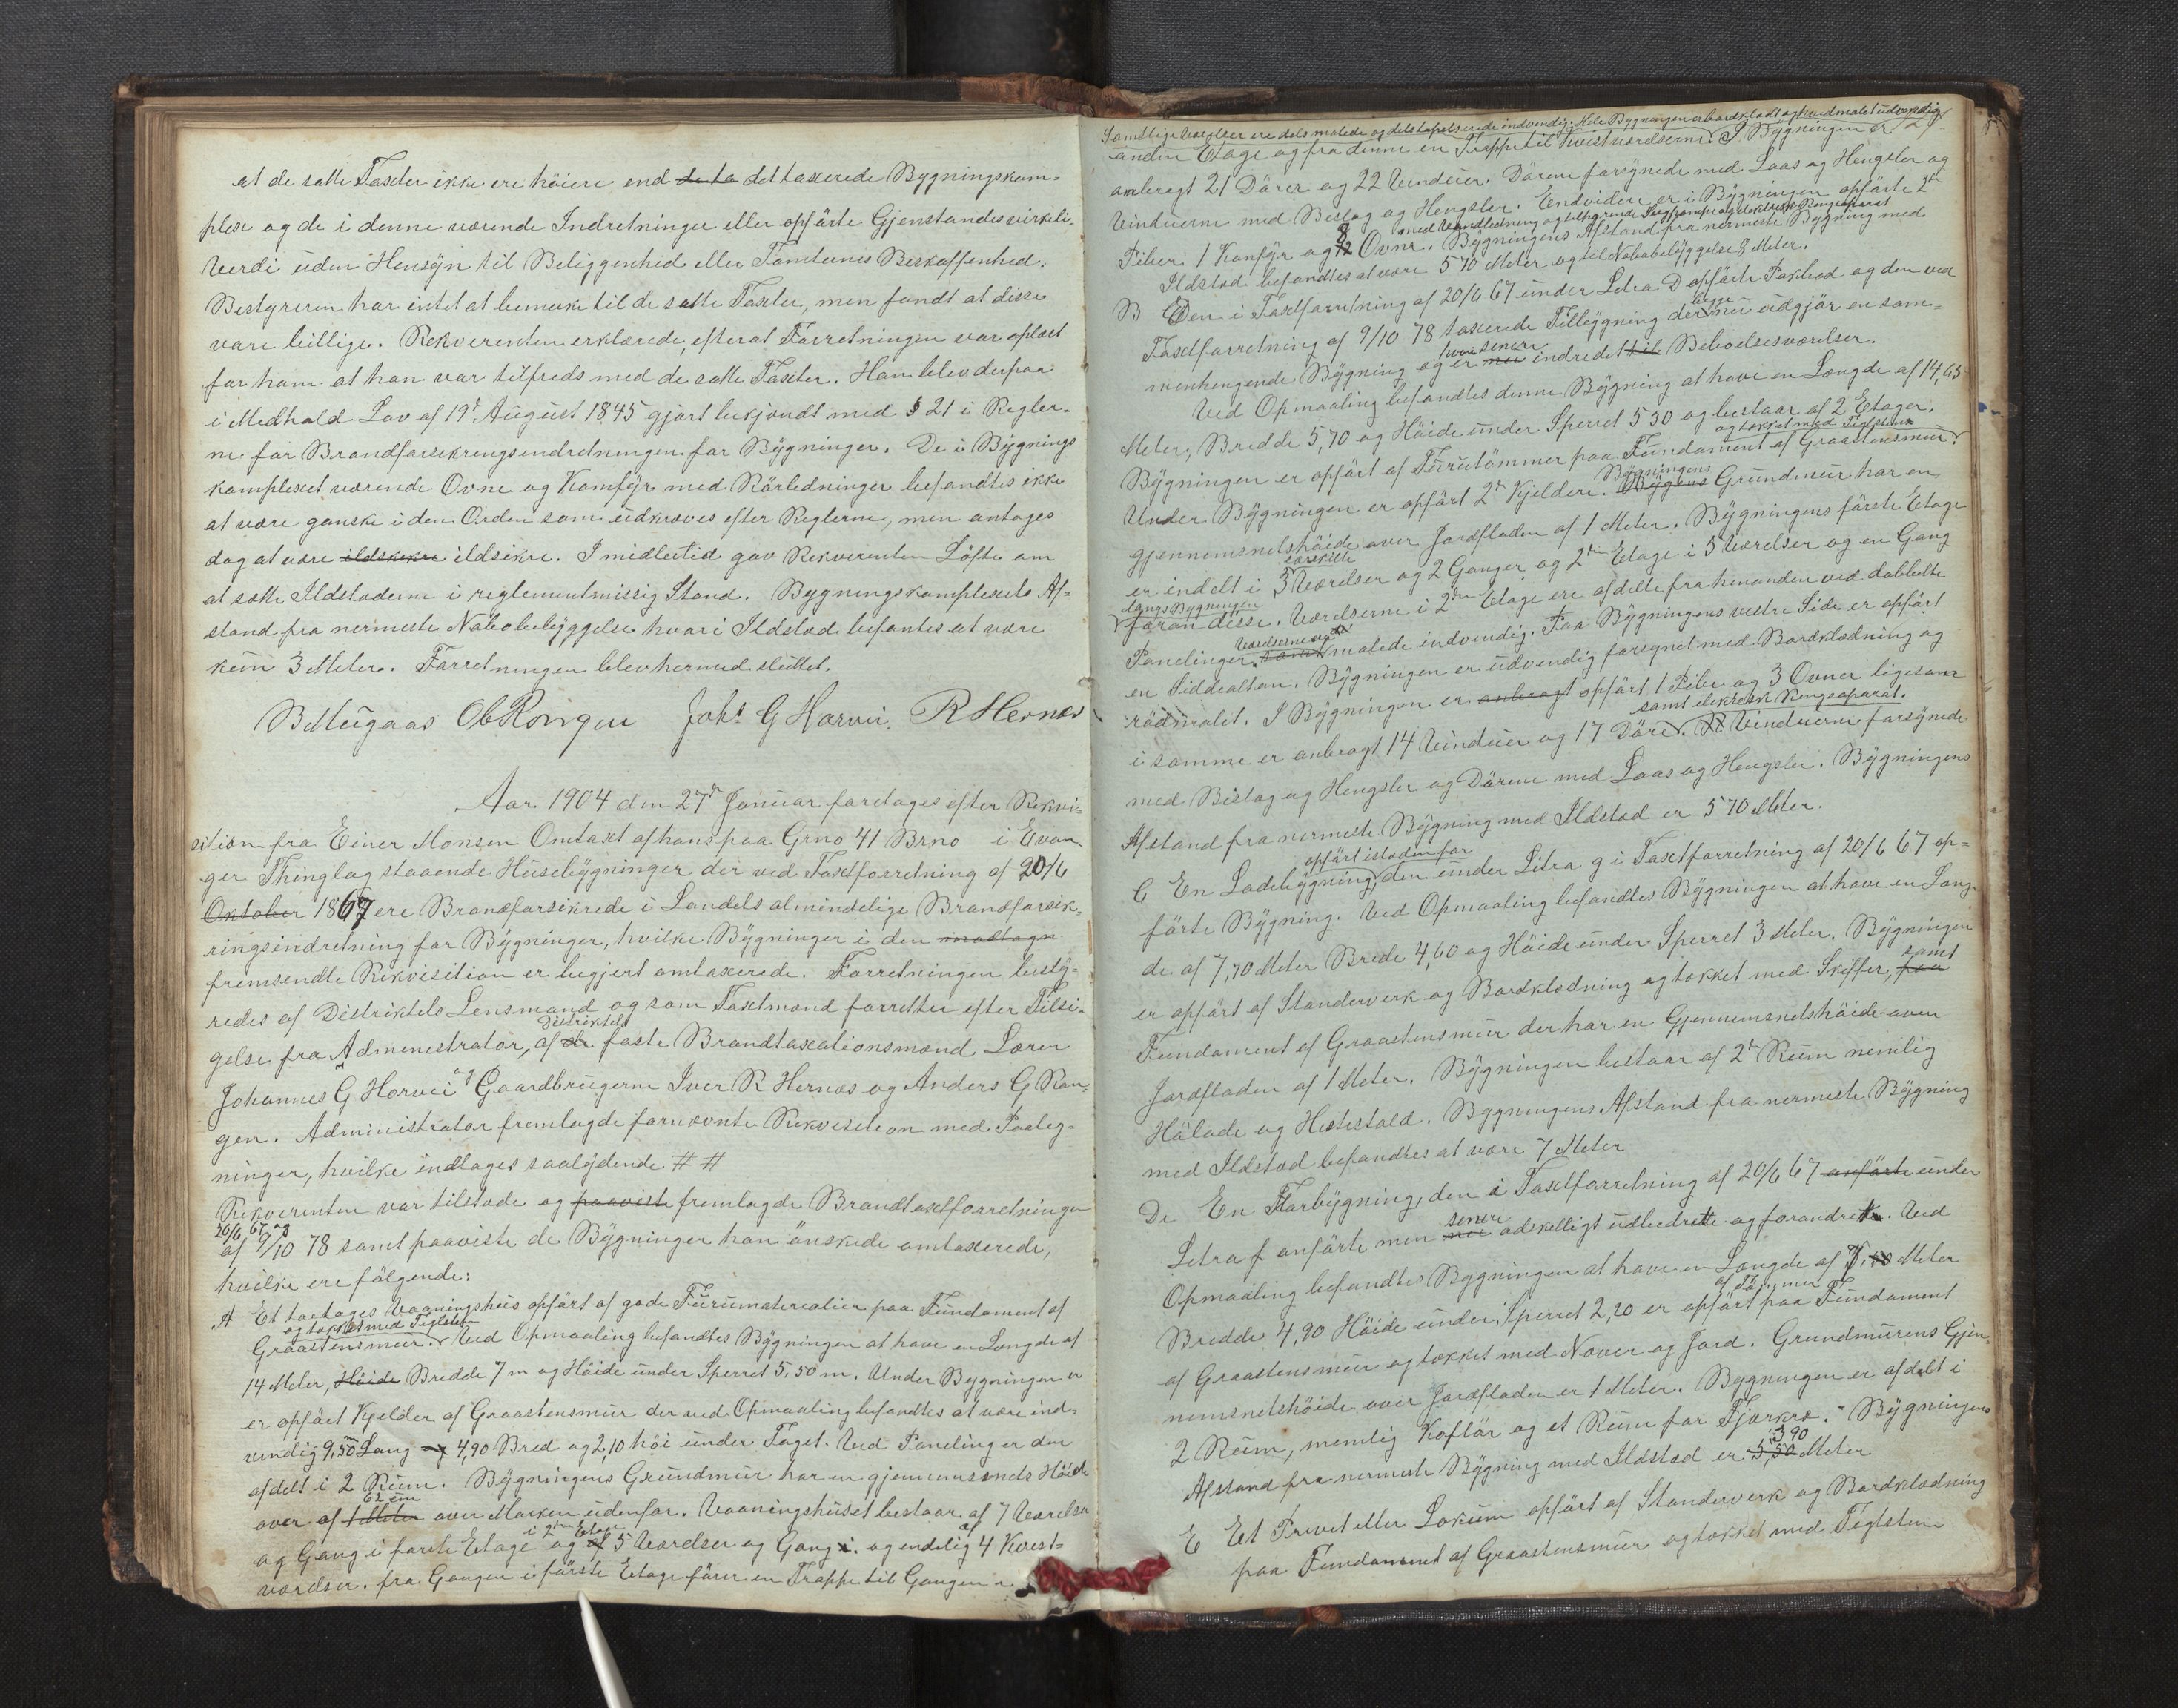 at de satte Taxter ikke ere höiere end de to det taxerede Bygningskom-
plex og de i denne værende Indretninger eller opförte Gjenstandes virkeli-
Verdi uden Hensyn til Beliggenhed eller Tomternes Beskaffenhed.
Bestyreren har intet at bemerke til de satte Taxter, men fandt at disse
vare billige. Rekverenten erklærede, efterat Forretningen var oplæst
for ham at han var tilfreds med de satte Taxter. Han blev derpaa
i Medhold Lov af 19de August 1845 gjort bekjendt med § 21 i Regler-
ne for Brandforsikringsindretningen for Bygninger. De i Bygnings
komplexet værende Ovne og Komfyr med Rörledninger befandtes ikke
at være ganske i den Orden som udkræves efter Reglerne, men antages
dog at være ildsikre ildsikre. Imidlertid gav Rekverenten Löfte om
at sætte Ildstederne i reglementmissig Stand. Bygningskomplexets Af-
stand fra nermeste Nabobebyggelse hvori Ildsted befantes at være
kun 3 Meter. Forretningen blev hermed sluttet.
Johs G Horvei. R Hernæs
Aar 1904 den 27de Januar foretages efter Rekvi-
sition fra Einer Monsen Omtaxt af hans paa Grno 41 Brno i Evan-
ger Thinglag staaende Husebygninger der ved Taxtforretning af 20/6
Oktober 1867 ere Brandforsikrede i Landets almindelige Brandforsik-
ringsindretning for Bygninger, hvilke Bygninger i den modtagn
fremsendte Rekvisition er begjert omtaxerede. Forretningen besty-
redes af Distriktets Lensmand og som Taxtmænd forretter efter Tilsi-
Distriktets
gelse fra Administrator, af de faste Brandtaxationsmænd Lærer
Johannes G Horvei og Gaardbrugerne Iver R Hernæs og Anders G Ron-
gen. Administrator fremlagde fornævnte Rekvisition med Paateg-
ninger, hvilke indtages saalydende # #
Rekverenten var tilstede og paaviste fremlagde Brandtaxtforretninger
20/6 67 og
af 9/10 78 samt paaviste de Bygninger han önskede omtaxerede,
hvilke ere fölgende:
A Et toetages Vaaningshus opfört af gode Furumaterialier paa Fundament af
og takket med Teglsten
Graastensmur. Ved Opmaaling befandtes Bygningen at have en Længde af
14 Meter, Höide Bredde 7 m og Höide under Sperret 5,50 m. Under Bygningen er
er opfört Kjelder af Graastensmur der ved Opmaaling befandtes at være ind-
vendig 9,50 m Lang og 4,90 Bred og 2,10 höi under Taget. Ved Paneling er den
afdelt i 2 Rum. Bygningens Grundmur har en gjennemsnets Höide
62 cm
over af 1 Meter over Marken udenfor. Vaaningshuset bestaar af 7 Værelser
i 2den Etage af
og Gang i förste Etage og af 5 Værelser og Gang i. og endelig 4 Kvist-
værelser. fra Gangen i förste Etage förer en Trappe til Gangen i
Samtlige Værelser ere dels malede og dels tapetserede indvendig. Hele Bygningen er bordklædt og hvidmalet udvendig
anden Etage og fra denne en Trappe til Kvistværelserne. I Bygningen er
anbragt 21 Dörer og 22 Vinduer. Dörene forsynede med Laas og Hengsler og
Vinduerne med Beslag og Hengsler. Endvidere er i Bygningen opförte 2de
med Vandledning og tilhörende Sugpompe og elektrisk Ringeaparat
Piber 1 Komfyr og 12 8 Ovne. Bygningens Afstand fra nermeste Bygning med
Ildsted befandtes at være 5 70 Meter og til Nabobebyggelse 8 Meter.
B Den i Taxtforretning af 20/6 67 under Litra D opförte Pakbod og den ved
Taxtforretning af 9/10 78 taxerede Tilbygning der nu udgjör en sam-
senere
menhengende Bygning og er nu indredet til Beboelsesværelser.
Ved Opmaaling befandtes denne Bygning at have en Længde af 14,65
Meter, Bredde 5,70 og Höide under Sperret 5 30 og bestaar af 2 Etager.
og tækket med Teglsten
Bygningen er opfört af Furutömmer paa Fundament af Graastensmur.
Bygningens
Under Bygningen er opfört 2de Kjeldere. Bygens Grundmur har en
gjennemsnetshöide over Jordfladen af 1 Meter. Bygningens förste Etage
særskilte
er indelt i 3 Værelser og 2 Ganger og 2den Etage i 5 Værelser og en Gang
langs Bygningen
foran disse. Værelserne i 2den Etage ere afdelte fra hinanden ved dobbelte
Værelserne ogsaa
Panelinger. samt malede indvendig. Paa Bygningens vestre Side er opfört
en Siddealtan. Bygningen er udvendig forsynet med Bordklædning og
rödmalet. I Bygningen er anbragt opfört 1 Pibe og 3 Ovner ligesom
samt elektrisk Ringeaparat.
i samme er anbragt 14 Vinduer og 17 Döre. Vinduerne forsynede
med Beslag og Hengsler og Dörene med Laas og Hengsler. Bygningens
Afstand fra nermeste Bygning med Ildsted er 5 70 Meter.
opfört istedenfor
C En Ladebygning, den under Litra g i Taxtforretning af 20/6 67 op-
förte Bygning. Ved Opmaaling befandtes Bygningen at have en Læng-
de af 7,70 Meter Brede 4,60 og Höide under Sperret 3 Meter. Bygningen
samt
er opfört af Standerverk og Bordklædning og tækket med Skiffer, paa
Fundament af Graastensmur der har en Gjennemsnetshöide over
Jordfladen af 1 Meter. Bygningen bestaar af 2de Rum nemlig
Hölade og Hestestald. Bygningens Afstand fra nermeste Bygning
med Ildsted befandtes at være 7 Meter
D En Florbygning, den i Taxtforretning af 20/6 67 anförte under
senere
Litra f anförte men nu adskelligt udbedrette og forandrette. Ved
Opmaaling befandtes Bygningen at have en Længde af 7, Meter
af Tömmer
Bredde 4,90 Höide under Sperret 2,20 er opfört paa Fundament
af Graastensmur og tækket med Næver og Jord. Grundmurens Gjen-
nemsnetshöide over Jordfladen er 1 Meter. Bygningen er afdelt i
2 Rum, nemlig Koflör og et Rum for Fjærkræ. Bygningens
3 90
Afstand fra nermeste Bygning med Ildsted er 5,50 Meter
E Et Privet eller Lokum opfört af Standerverk og Bordklædning
paa Fundament af Graastensmur og tækket med Teglsten